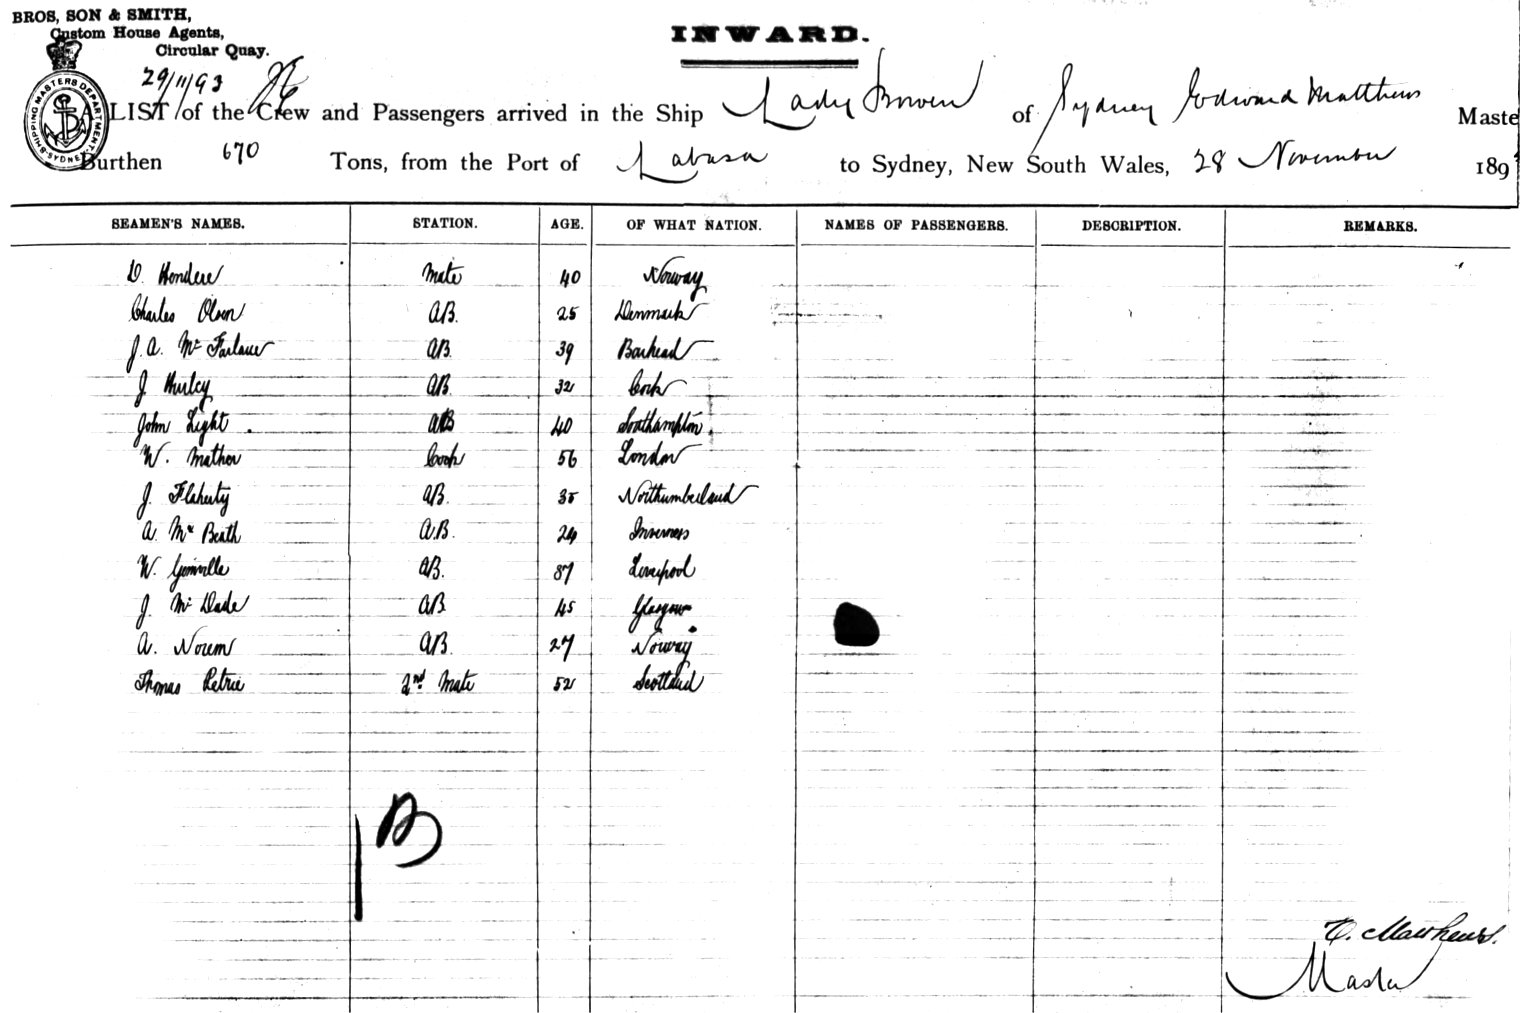 BROS, SON & SMITH,
Custom House Agents,
Circular Quay.
INWARD.
29/11/93
SHIPPING MASTERS DEPARTMENT SYDNEY
A LIST of the Crew and Passengers arrived in the Ship Lady Bowen of Sydney Edward Matthews Maste
Burthen 670 Tons, from the Port of Labasa to Sydney, New South Wales, 28 November 189
SEAMEN'S NAMES. STATION. AGE. OF WHAT NATION. NAMES OF PASSENGERS. DESCRIPTION. REMARKS.
Mate 40 Norway
Charles Olsen AB. 25 Denmark
J. A. McFarlane AB. 39 Barhead
J Hurley AB. 32 Cork
John Light AB 40 Southampton
W. Mather Cook 56 London
J. Flaherty AB. 35 Northumberland
A. McBeath A.B. 24 Inverness
W. AB. 37 Liverpool
J. Mc AB. 45 Glasgow
A. Norem AB. 27 Norway
Thomas Petrie 2nd Mate 52 Scotland
B
E. Matthews.
Master